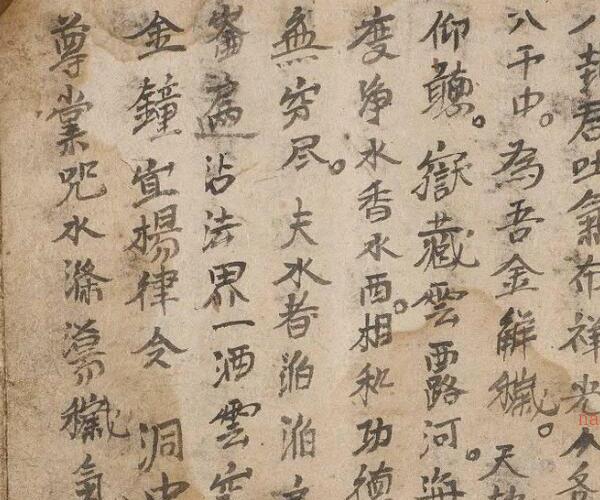 封君吐氣布祥光
八干中。為吾金解穢。天
仰聽。嶽藏雲西路河。海
度淨水香水酉。相和功德
無穷尽。夫水者泊泊
遍沾法界一洒雲
金鐘宜楊律令 洞中
尊掌咒水滌蕩穢氣